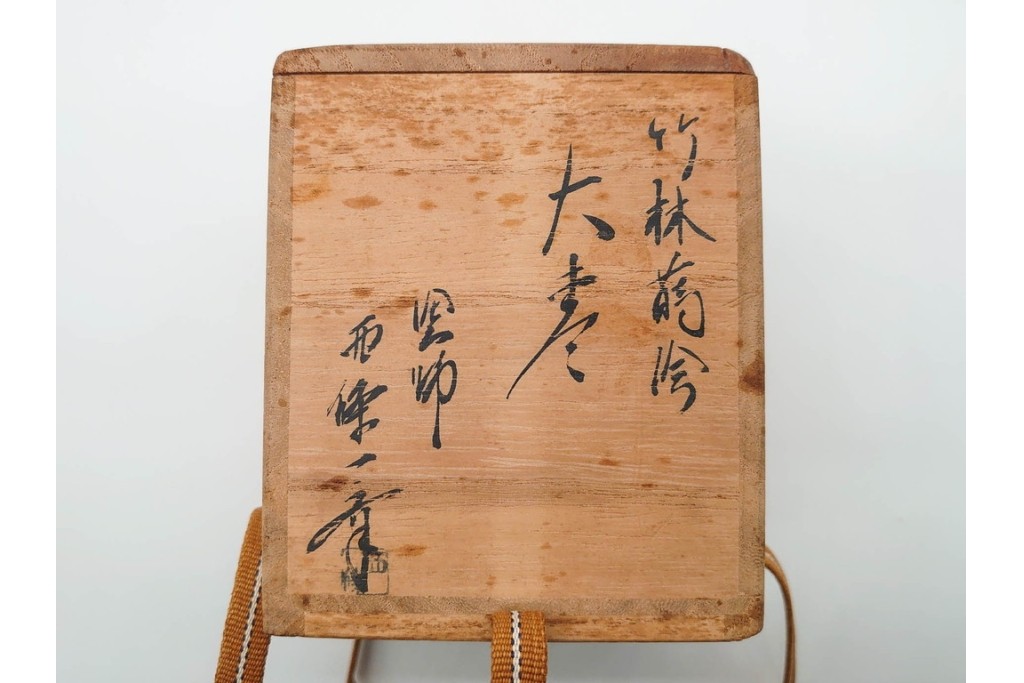 竹林蒔絵
大棗
塗師
西條一斎